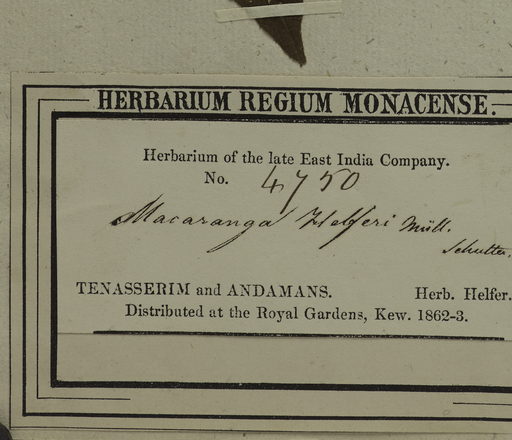 HERBARIUM REGIUM MONACENSE.
Herbarium of the late East India Company.
No. 4750
Macaranga Helferi Müll.
TENASSERIM and ANDAMANS. Herb. Helfer.
Distributed at the Royal Gardens, Kew. 1862-3.